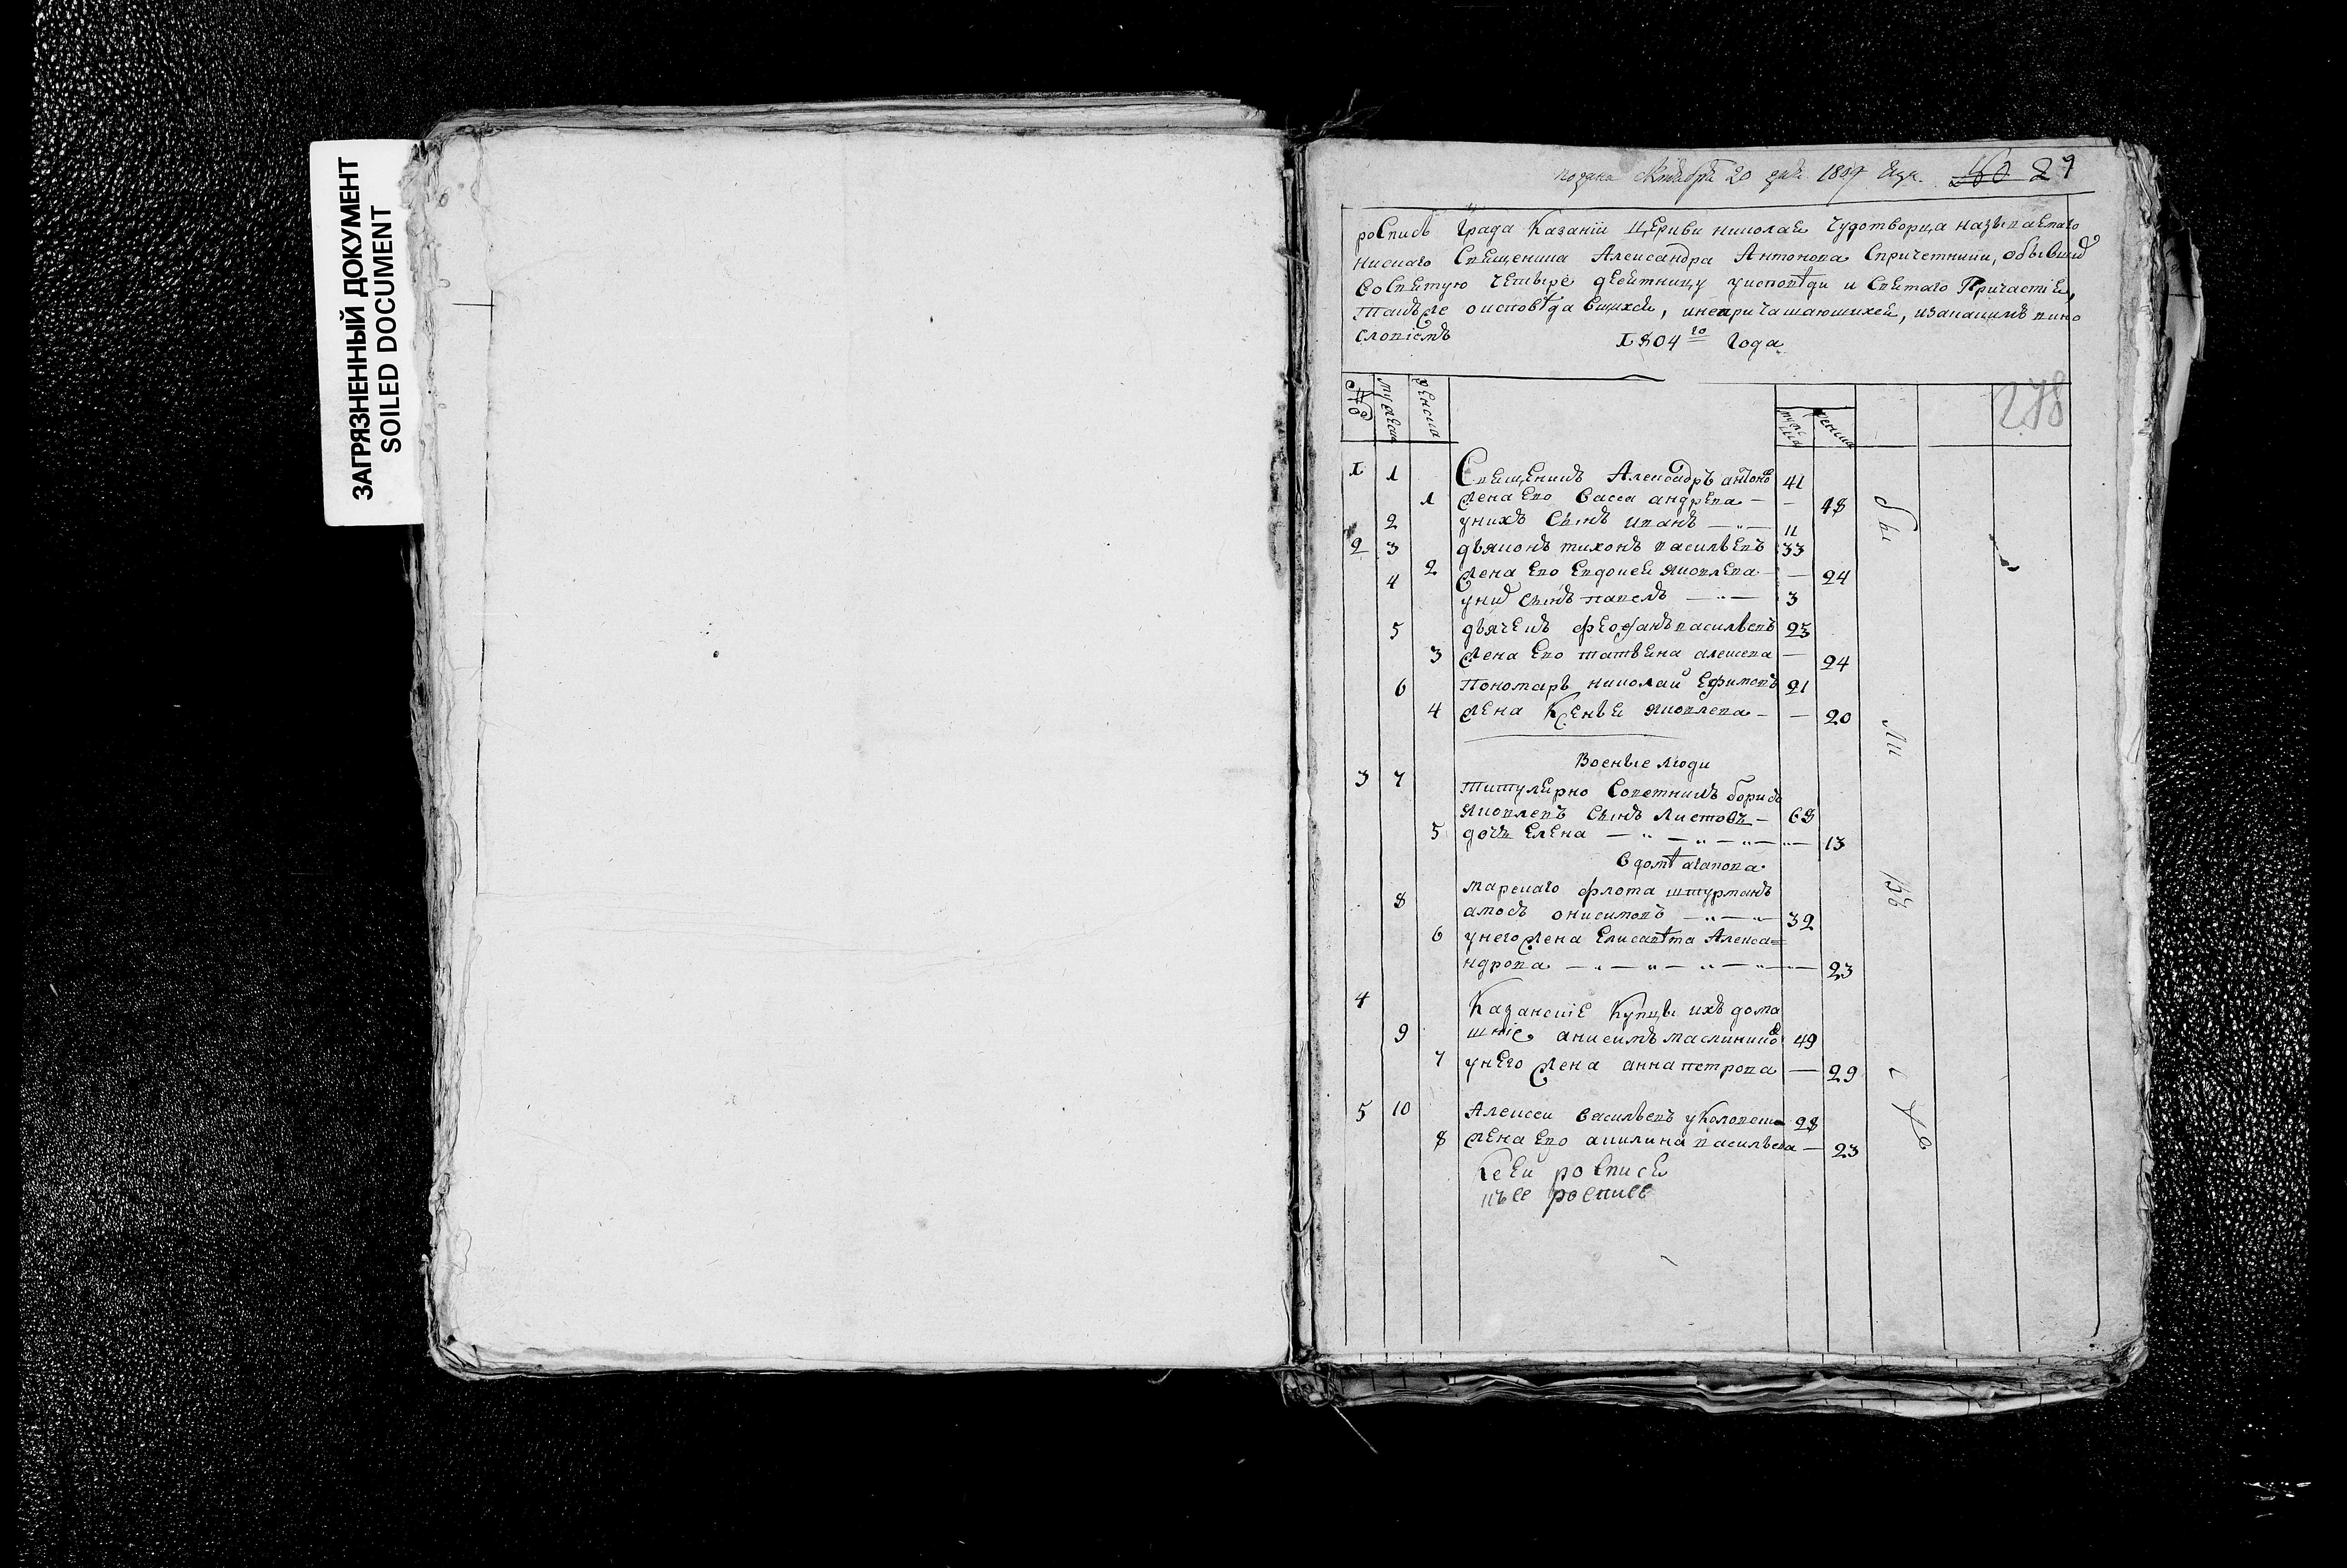 ЗАГРЯЗНЕННЫЙ ДОКУМЕНТ
SOILED DOCUMENT
подана Октября 20 дня 1804 29
роспись града Казани церкви николая чудотворца называемаго
нискаго священика Александра Антонова спричетники, обывшихъ
восвятую четыредесятницу уисповѣди и святаго Причастія,
также оисповѣдавшихся, инепричащающихся, изакакимъ вино
словіемъ
1804го года
№ мужеска женска мужеска женска 278
1 1 Священикъ Александръ антоно 41
1 жена ево васса андрева — — 48
2 унихъ сынъ иванъ — 11
2 3 дьяконъ тихонъ васильевъ 33
2 жена ево евдокея яковлева — 24
4 уних сынъ павелъ — 3
5 дьячекъ феофанъ васильевъ 23
3 жена ево татьяна алексева — 24
6 Пономарь николай ефимовъ 21
4 жена Ксенья яковлева — — 20
Военые люди
3 7 титулярно советникъ борисъ
яковлевъ сынъ листовъ — 68
5 дочь елена — 13
вдомѣ агапова
8 марскаго флота штурманъ
амосъ онисимовъ — 32
6 унего жена елисавѣта Алекса=
ндрова — 23
4 Казанские купцы ихъ дома
9 шние анисимъ 49
7 унего жена анна петрова — 29
5 10 Алексеи васильевъ 28
8 жена ево акилина васильева — 23
Ксей росписе
къ се росписе